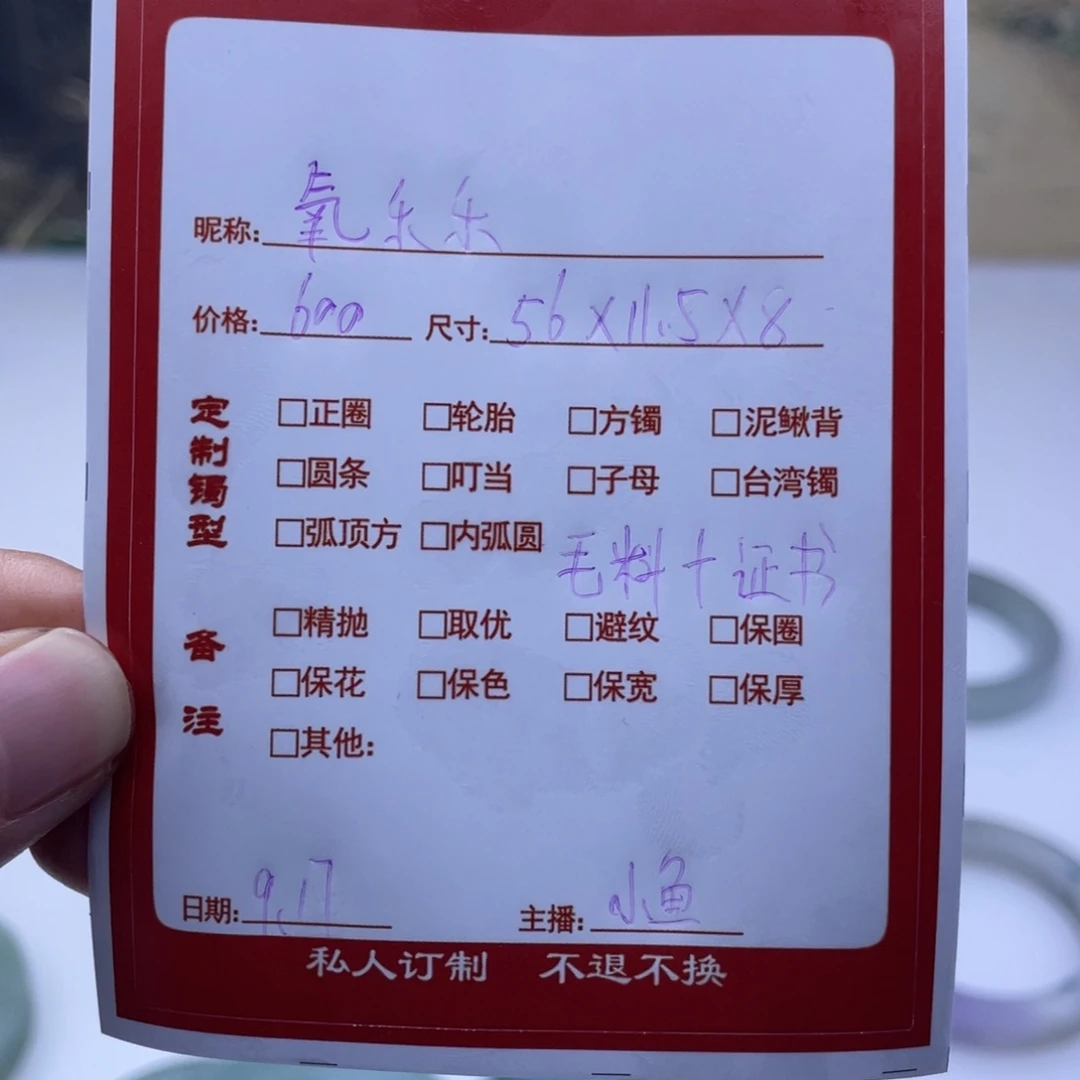 昵称:氧乐乐
价格:600 尺寸:56×11.5×8
定制镯型
□正圈 □轮胎 □方镯 □泥鳅背
□圆条 □叮当 □子母 □台湾镯
□弧顶方 □内弧圆
毛料+证书
备注
□精抛 □取优 □避纹 □保圈
□保花 □保色 □保宽 □保厚
□其他:
日期:9.17 主播:小鱼
私人订制 不退不换